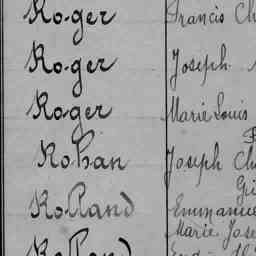 Roger Francis Ch
Roger Joseph
Roger Marie Louis
Rohan Joseph Ch
Rolland Emmanue
Marie Jose
Rolland